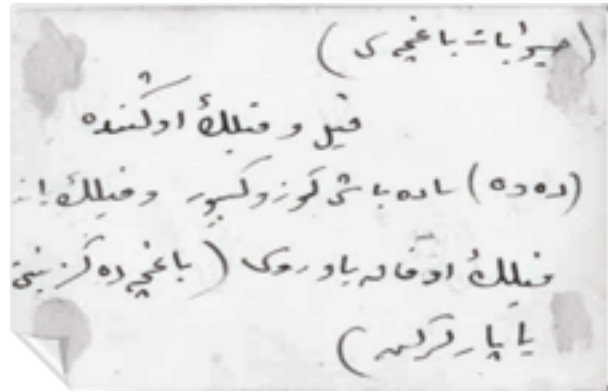 (حیوانات باغچه‌سی)
فیل و فیلك اوگنده
(ده‌ده) ساده باشی گوزوكییور و فیلك
فیلك اوفاق یاوروسی (باغچه‌ده گزینتی
یاپاركن)